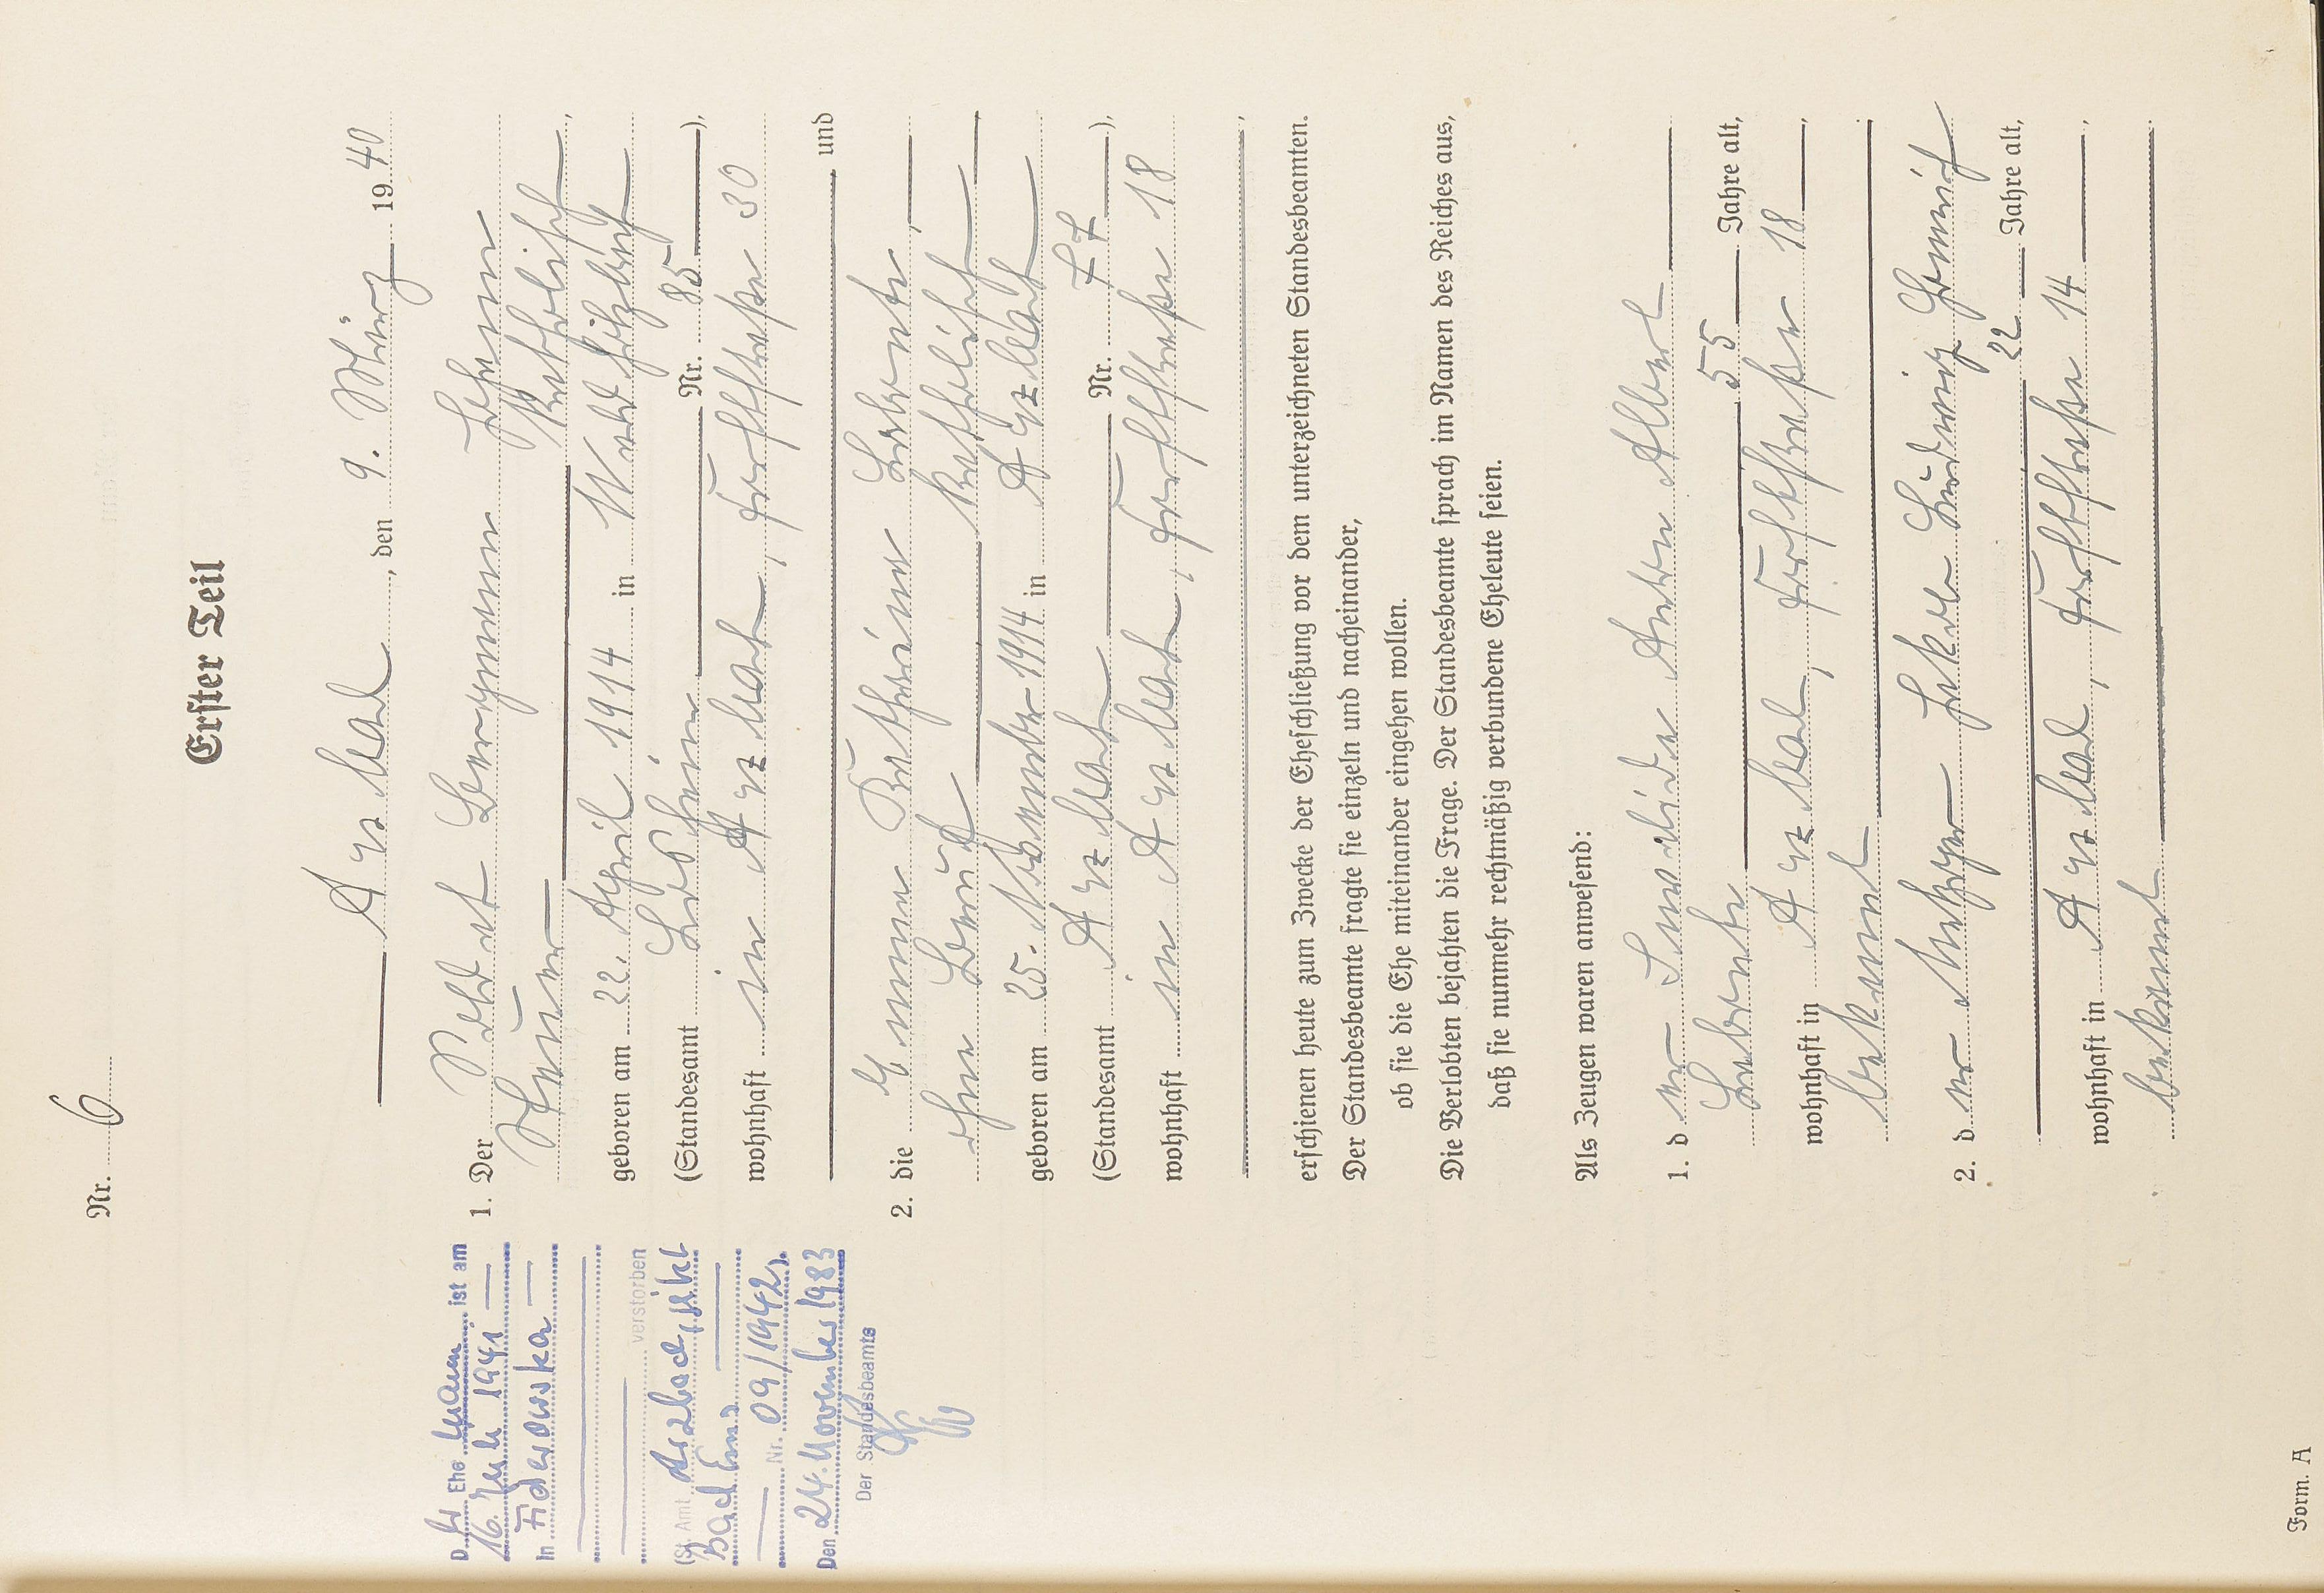 Nr. 6
Erster Teil
Arzbach, den 9. März 1940
1. Der
Steuer katholisch,
geboren am 22. April 1914 in
(Standesamt Nr. 85),
wohnhaft in Arzbach, Kirchstraße 30
und
2. die Emma Katharina Labonte,
ohne Beruf katholisch
geboren am 25. November 1914 in Arzbach
(Standesamt Arzbach Nr. 77),
wohnhaft in Arzbach, Kirchstraße 18,
erschienen heute zum Zwecke der Eheschließung vor dem unterzeichneten Standesbeamten.
Der Standesbeamte fragte sie einzeln und nacheinander,
ob sie die Ehe miteinander eingehen wollen.
Die Verlobten bejahten die Frage. Der Standesbeamte sprach im Namen des Reiches aus,
daß sie nunmehr rechtmäßig verbundene Eheleute seien.
Als Zeugen waren anwesend:
1. der Invalide Anton Albert
Labonte 55 Jahre alt,
wohnhaft in Arzbach, Kirchstraße 18,
bekannt,
2. der Metzger Ludwig
22 Jahre alt,
wohnhaft in Arzbach, Kirchstraße 14,
bekannt,
Der Ehemann ist am
16. Juli 1941
in Fiderowska
verstorben
(St. Amt Arzbach, jetzt
Bad Ems
Nr. 09/1942).
Den 24. November 1983
Der Standesbeamte
Form. A